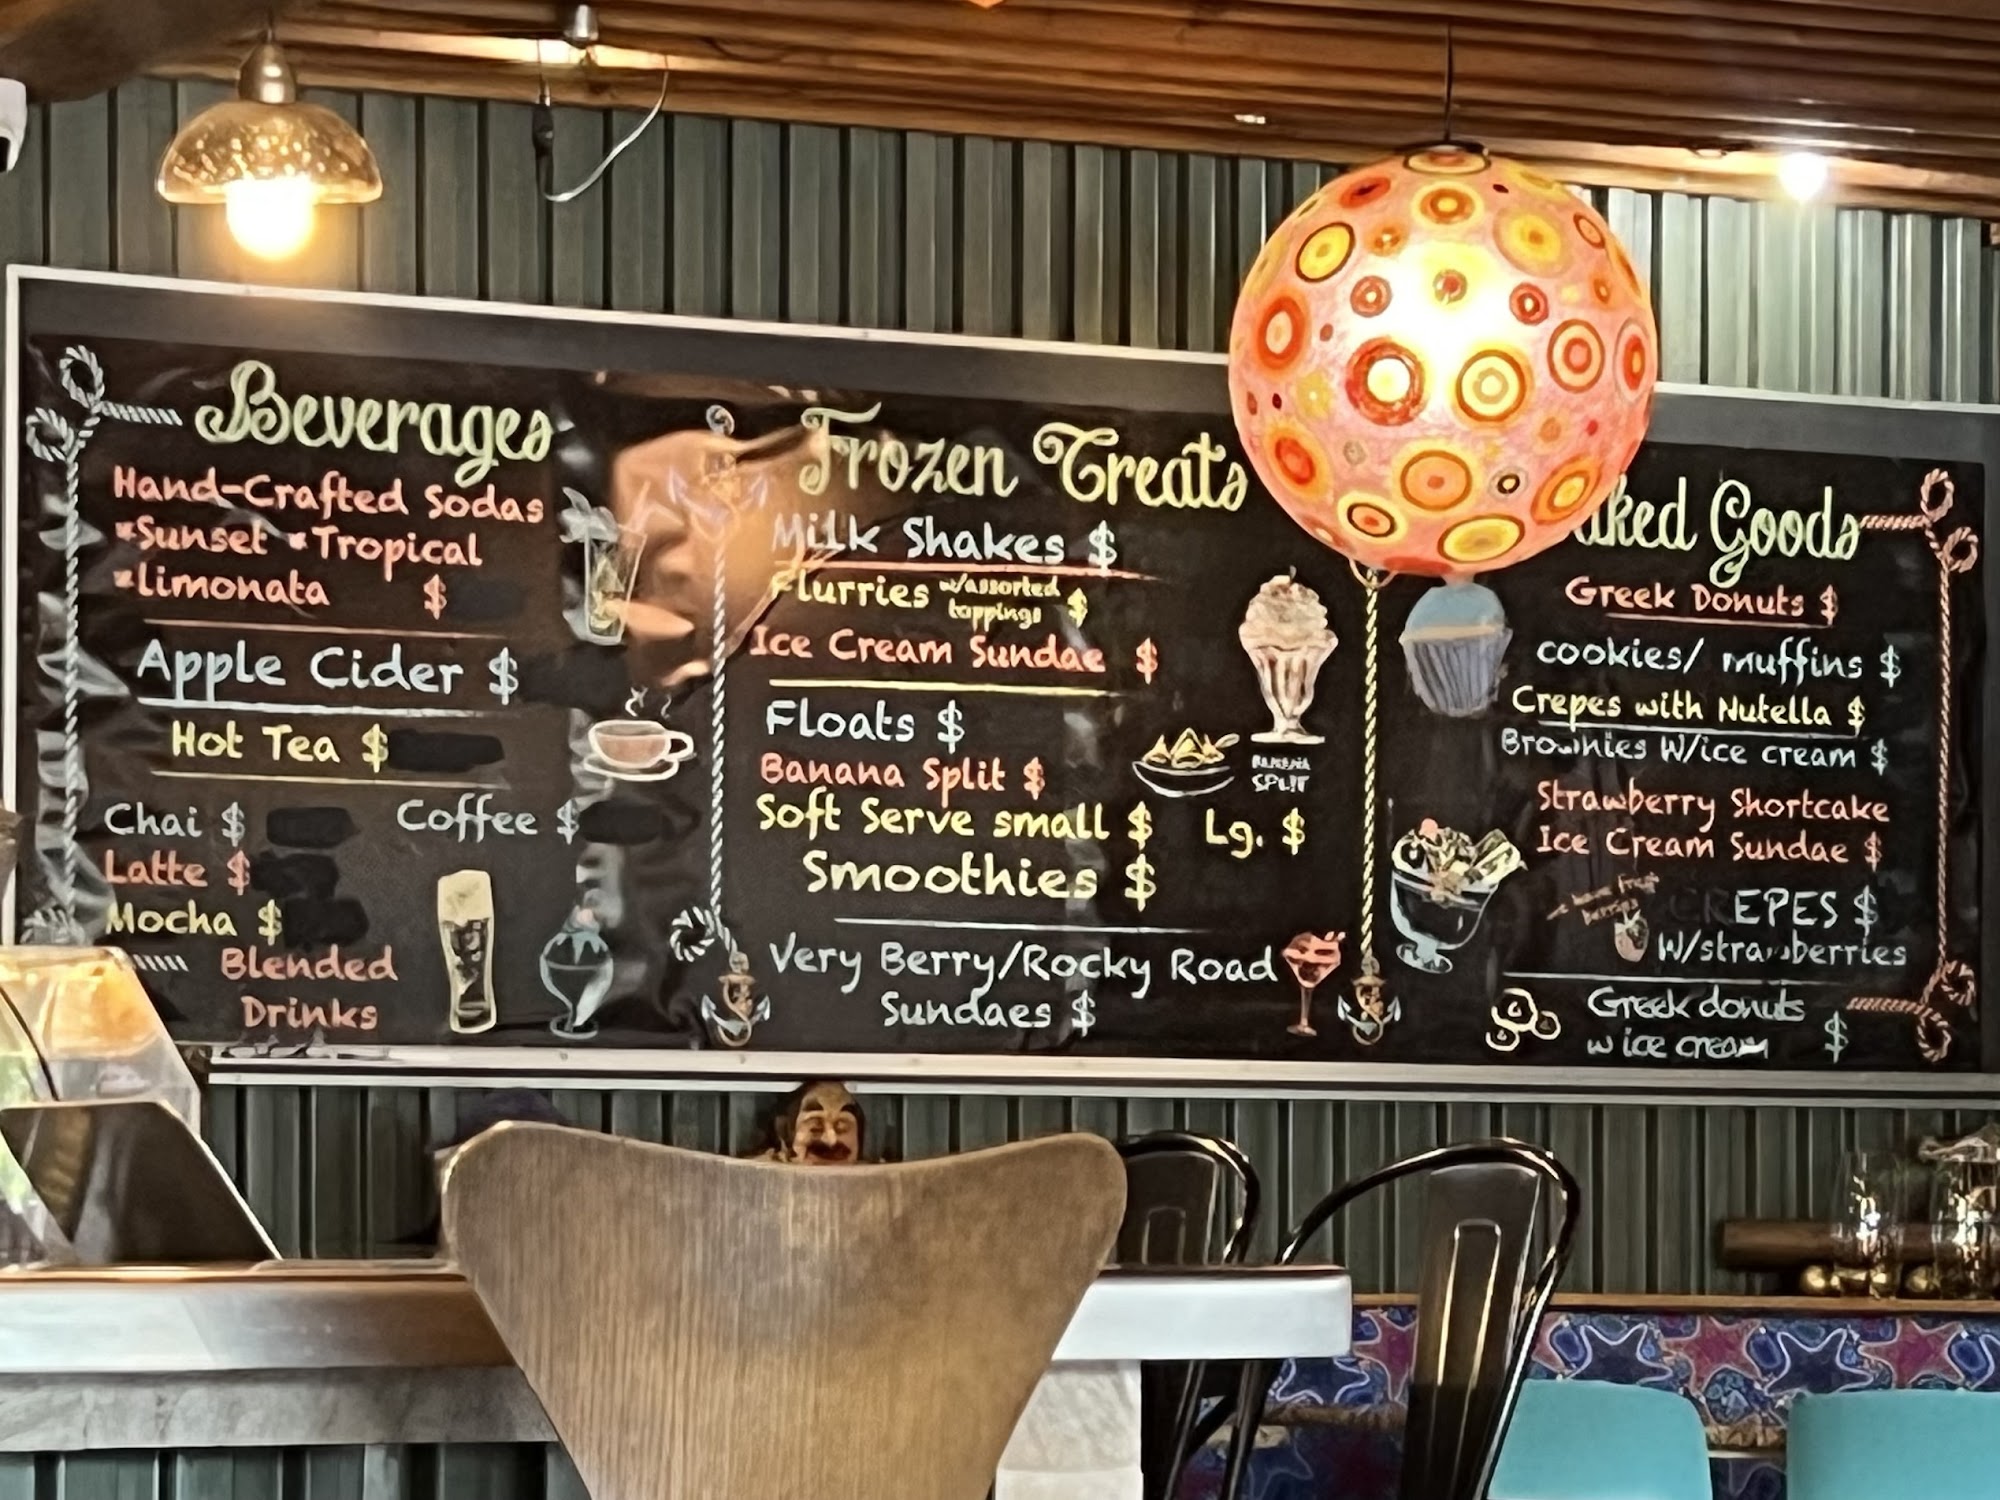 Beverages
Hand-Crafted Sodas
*Sunset *Tropical
*limonata $
Apple Cider $
Hot Tea $
Chai $ Coffee $
Latte $
Mocha $
Blended
Drinks
Frozen Treats
Milk Shakes $
Flurries w/assorted
toppings $
Ice Cream Sundae $
Floats $
Banana Split $
BANANA
SPLIT
Soft Serve small $ Lg. $
Smoothies $
Very Berry/Rocky Road
Sundaes $
ked Goods
Greek Donuts $
cookies/ muffins $
Crepes with Nutella $
Brownies W/ice cream $
Strawberry Shortcake
Ice Cream Sundae $
CREPES $
W/strawberries
Greek donuts
w ice cream $